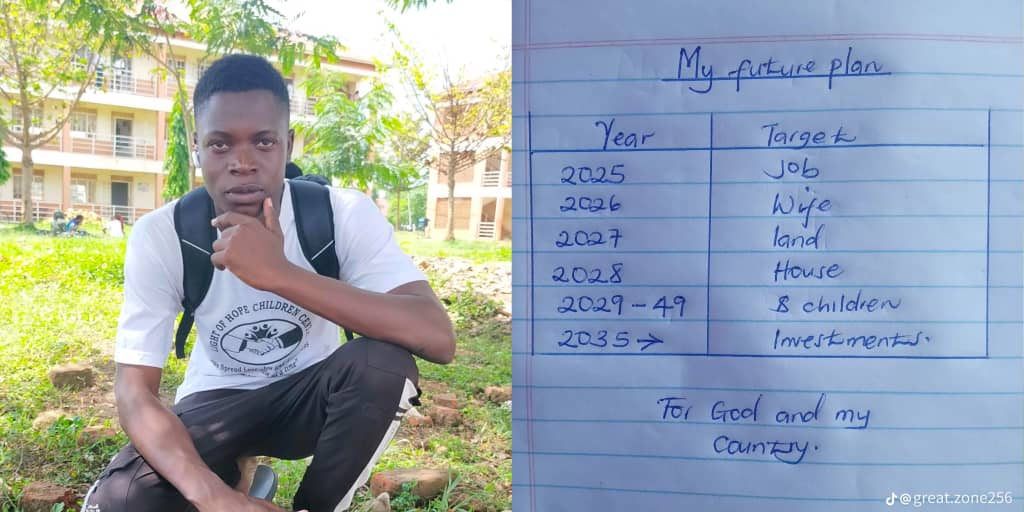 LIGHT OF HOPE CHILDREN CENT
My future plan
Year Target
2025 Job
2026 Wife
2027 land
2028 House
2029 - 49 8 children
2035 → Investments.
For God and my
Country.
@great.zone256